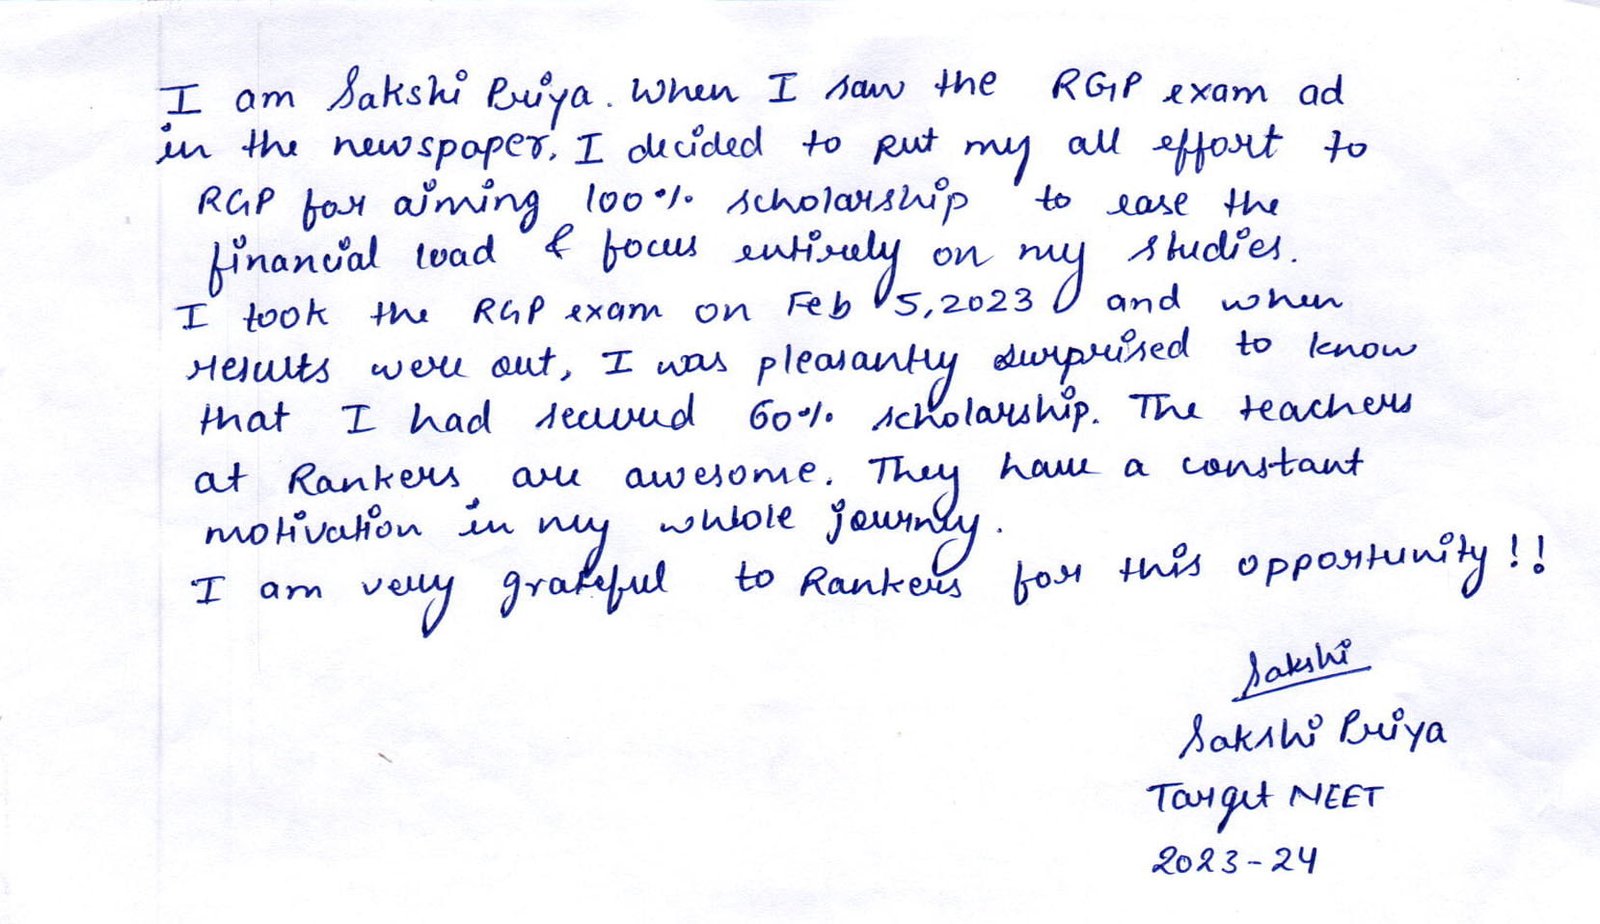 I am Sakshi Priya. When I saw the RGP exam ad
in the newspaper, I decided to put my all effort to
RGP for aiming 100% scholarship to ease the
financial load & focus entirely on my studies.
I took the RGP exam on Feb 5, 2023 and when
results were out, I was pleasantly surprised to know
that I had secured 60% scholarship. The teachers
at Rankers are awesome. They have a constant
motivation in my whole journey.
I am very grateful to Rankers for this opportunity!!
Sakshi
Sakshi Priya
Target NEET
2023-24